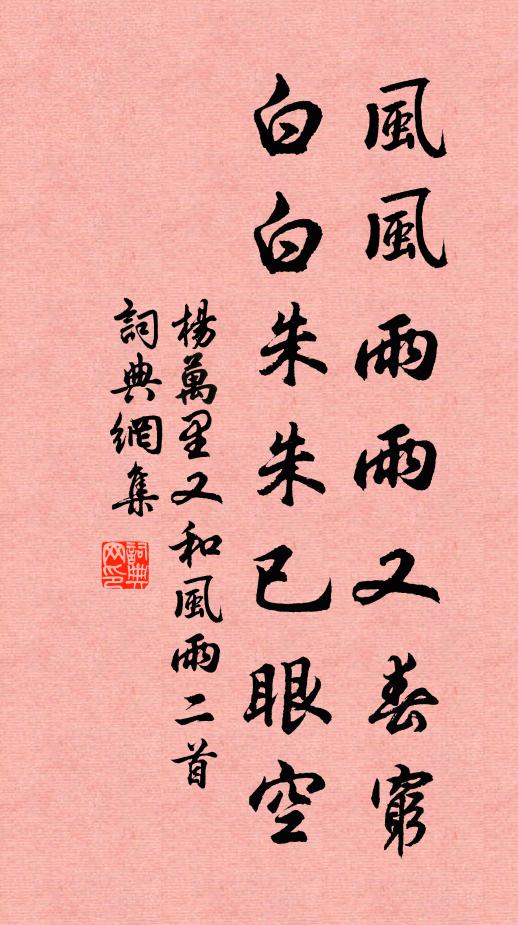 風風雨雨又春窮
白白朱朱已眼空
楊萬里又和風雨二首
詞典網集
詞典网印